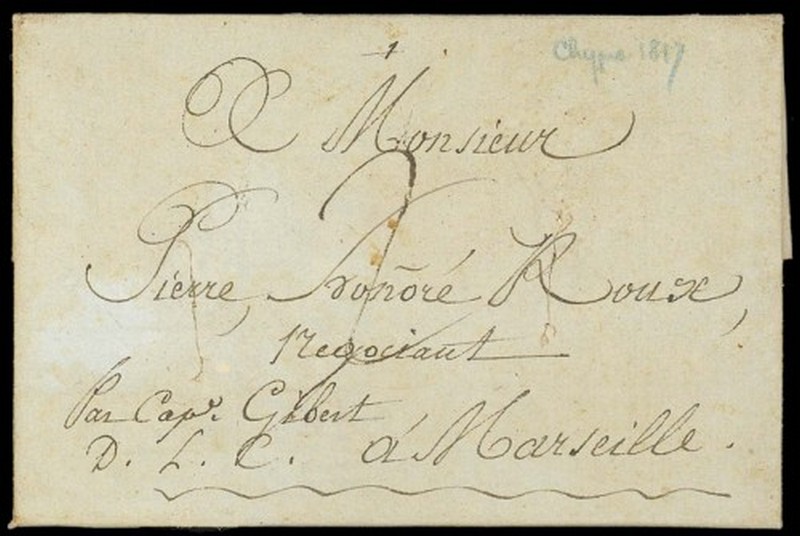 Chypre 1817
1
A Monsieur
Pierre, honoré Roux,
negociant
Par Capne. Gibert
D. L. C. á Marseille.